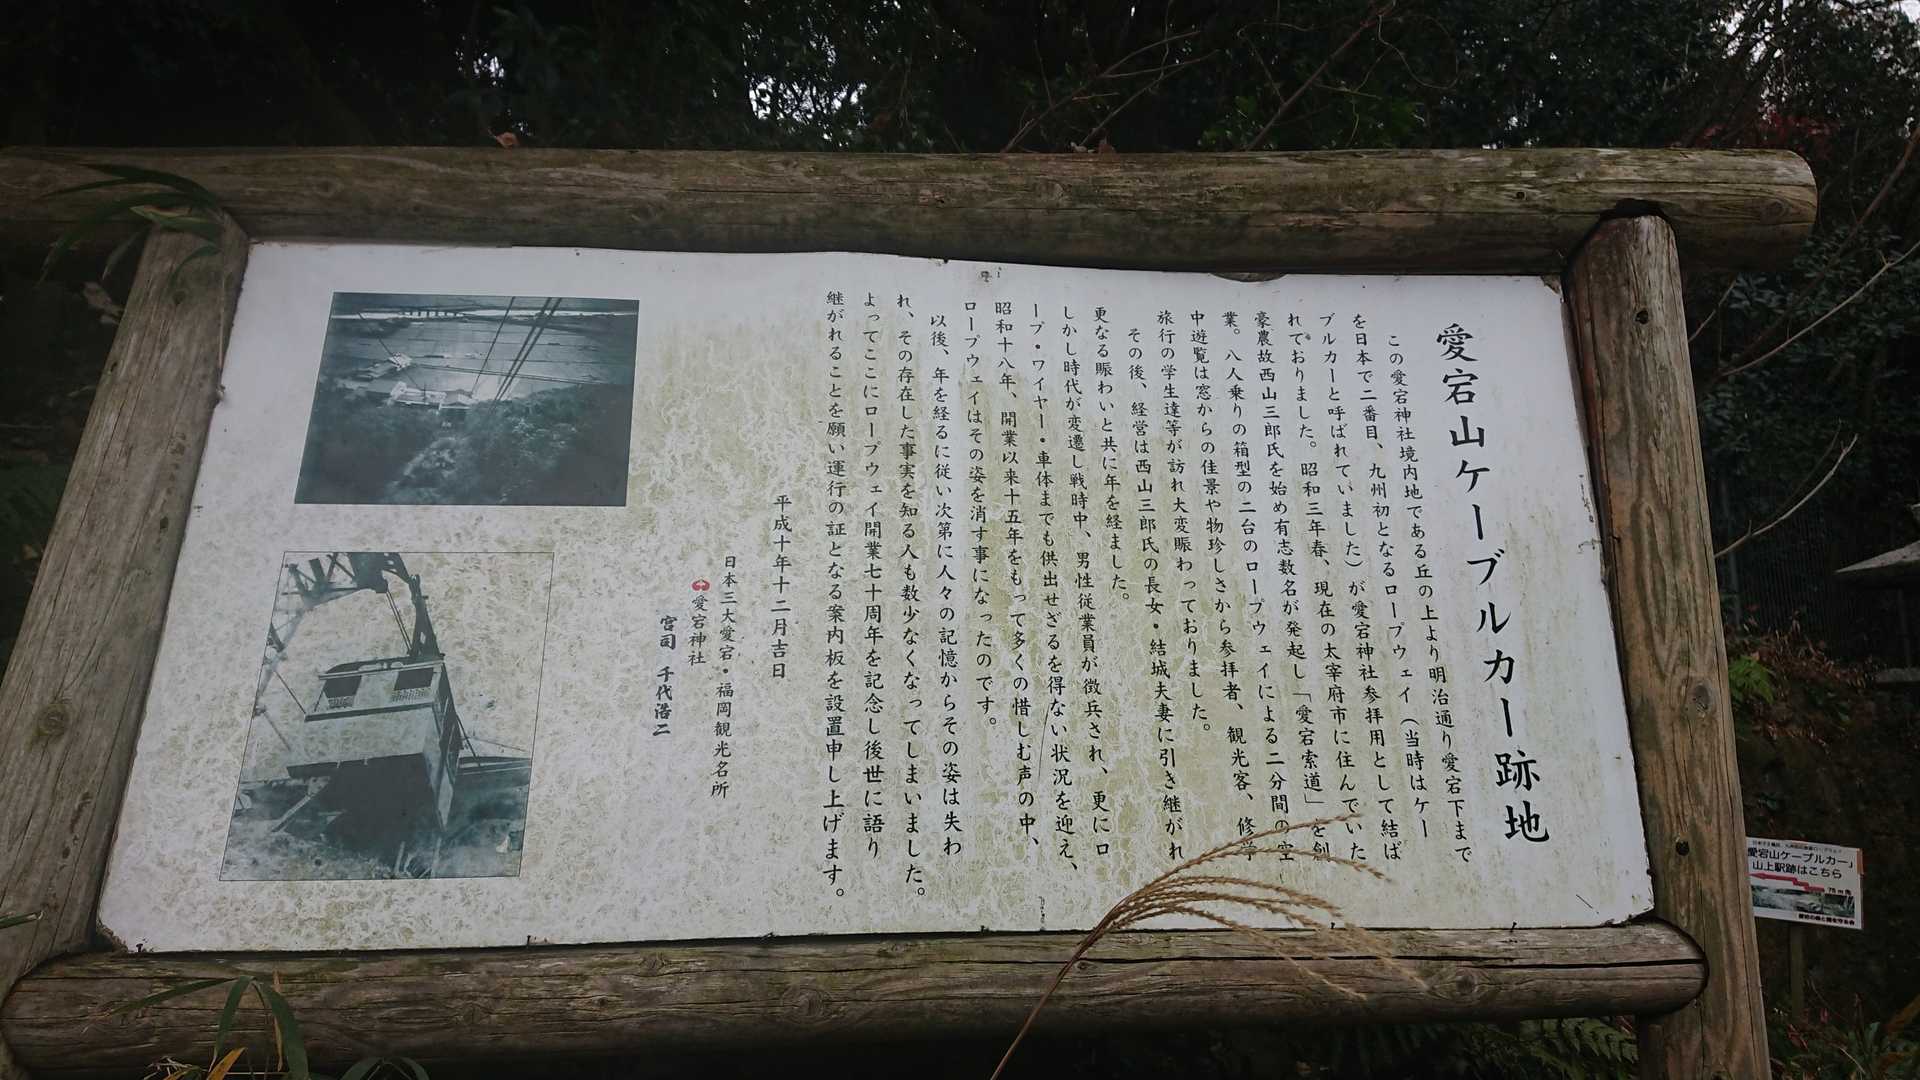 愛宕山ケーブルカー跡地
この愛宕神社境内地である丘の上より明治通り愛宕下まで
を日本で二番目、九州初となるロープウェイ（当時はケー
ブルカーと呼ばれていました）が愛宕神社参拝用として結ば
れておりました。昭和三年春、現在の太宰府市に住んでいた
豪農故西山三郎氏を始め有志数名が発起し「愛宕索道」を創
業。八人乗りの箱型の二台のロープウェイによる二分間の空
中遊覧は窓からの佳景や物珍しさから参拝者、観光客、修学
旅行の学生達等が訪れ大変賑わっておりました。
その後、経営は西山三郎氏の長女・結城夫妻に引き継がれ
更なる賑わいと共に年を経ました。
しかし時代が変遷し戦時中、男性従業員が徴兵され、更にロ
ープ・ワイヤー・車体までも供出せざるを得ない状況を迎え、
昭和十八年、開業以来十五年をもって多くの惜しむ声の中、
ロープウェイはその姿を消す事になったのです。
以後、年を経るに従い次第に人々の記憶からその姿は失わ
れ、その存在した事実を知る人も数少なくなってしまいました。
よってここにロープウェイ開業七十周年を記念し後世に語り
継がれることを願い運行の証となる案内板を設置申し上げます。
平成十年十二月吉日
日本三大愛宕・福岡観光名所
愛宕神社
宮司 千代浩二
「愛宕山ケーブルカー」
山上駅跡はこちら